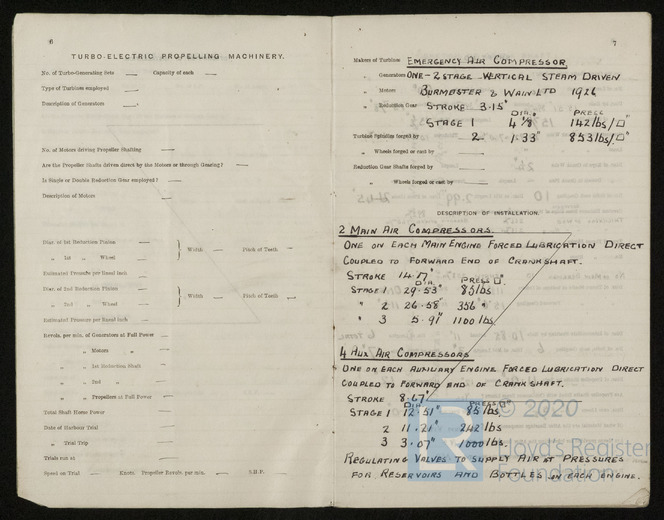 6
TURBO-ELECTRIC PROPELLING MACHINERY.
No. of Turbo-Generating Sets — Capacity of each —
Type of Turbines employed —
Description of Generators —
No. of Motors driving Propeller Shafting —
Are the Propeller Shafts driven direct by the Motors or through Gearing? —
Is Single or Double Reduction Gear employed? —
Description of Motors —
Diar. of 1st Reduction Pinion —
„ 1st „ Wheel — } Width — Pitch of Teeth —
Estimated Pressure per lineal inch —
Diar. of 2nd Reduction Pinion —
„ 2nd „ Wheel — } Width — Pitch of Teeth —
Estimated Pressure per lineal inch —
Revols. per min. of Generators at Full Power —
„ „ Motors „ —
„ „ 1st Reduction Shaft —
„ „ 2nd „ —
„ „ Propellers at Full Power —
Total Shaft Horse Power —
Date of Harbour Trial —
„ Trial Trip —
Trials run at —
Speed on Trial — Knots. Propeller Revols. per min. — S.H.P. —
7
Makers of Turbines EMERGENCY AIR COMPRESSOR
„ Generators ONE - 2 STAGE VERTICAL STEAM DRIVEN
„ Motors BURMEISTER & WAIN LTD 1926
„ Reduction Gear STROKE 3.15"
DIA. PRESS
STAGE 1 4 1/8" 142 lbs/□"
Turbine Spindles forged by — 2 — 1.33" 853 lbs/□"
„ Wheels forged or cast by —
Reduction Gear Shafts forged by —
„ Wheels forged or cast by —
DESCRIPTION OF INSTALLATION.
2 MAIN AIR COMPRESSORS.
ONE ON EACH MAIN ENGINE FORCED LUBRICATION DIRECT
COUPLED TO FORWARD END OF CRANKSHAFT.
STROKE 14.17"
DIA. PRESS □"
STAGE 1 29.53" 85 lbs
" 2 26.58" 356 "
" 3 5.91" 1100 lbs
4 AUX AIR COMPRESSORS
ONE ON EACH AUXILIARY ENGINE FORCED LUBRICATION DIRECT
COUPLED TO FORWARD END OF CRANKSHAFT.
STROKE 8.67"
DIA. PRESS □"
STAGE 1 12.51" 85 lbs
2 11.21" 242 lbs
3 3.07" 1000 lbs.
REGULATING VALVES TO SUPPLY AIR AT PRESSURES
FOR RESERVOIRS AND BOTTLES ON EACH ENGINE.
LR © 2020
Lloyd's Register
Foundation